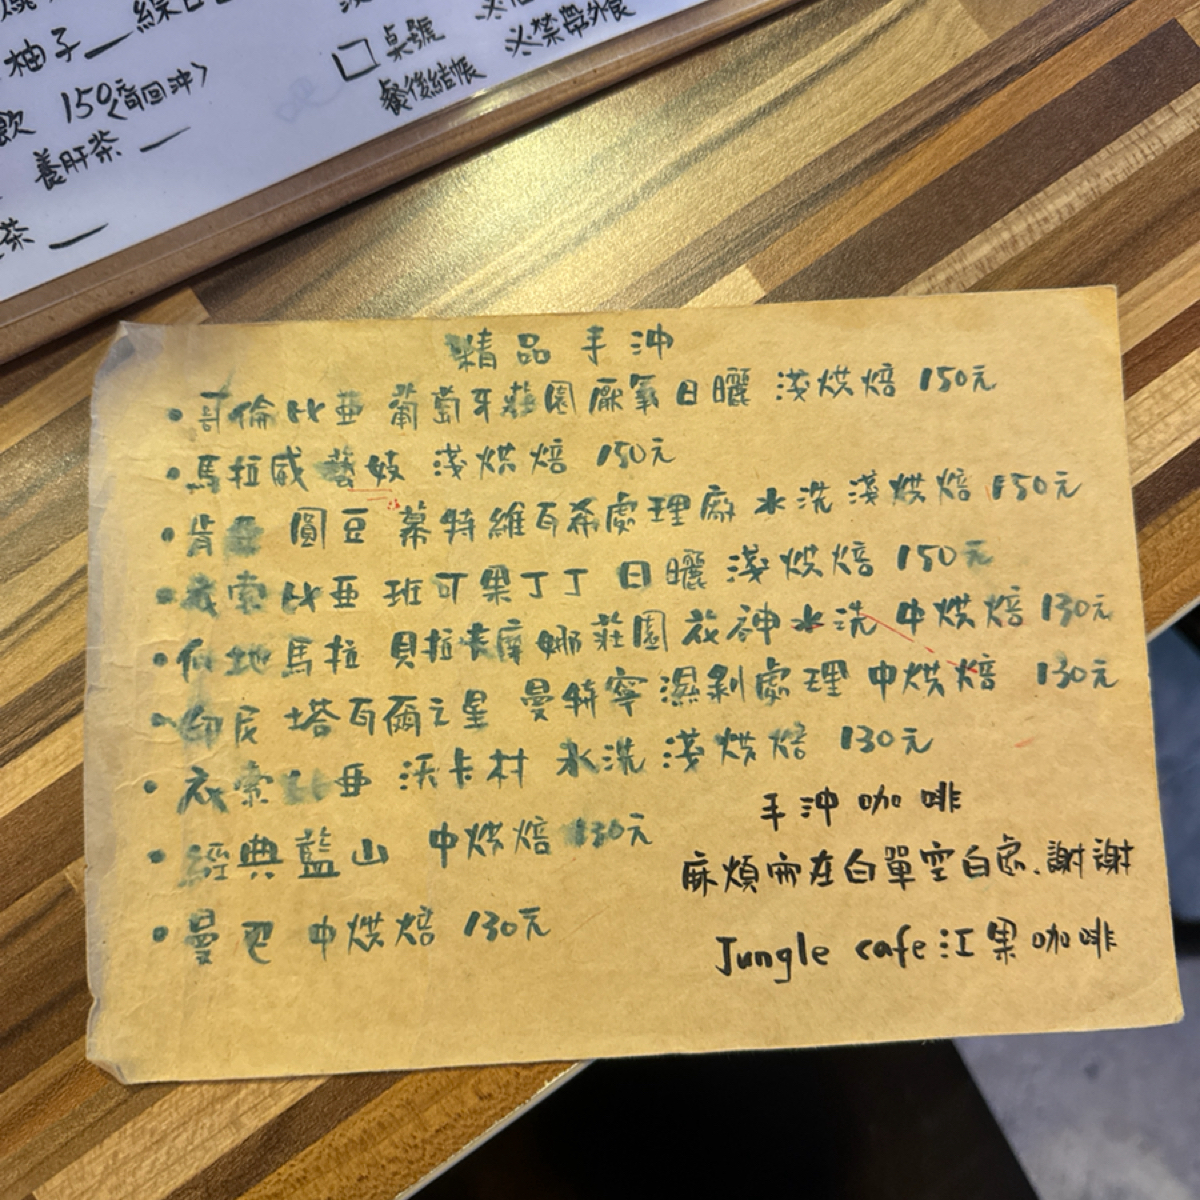 柚子
飲 150(可回沖)
養肝茶
茶
桌號
餐後結帳
※禁帶外食
精品手沖
• 哥倫比亞 葡萄牙莊園厭氧日曬 淺烘焙 150元
• 馬拉威藝妓 淺烘焙 150元
• 肯亞 圓豆 慕特維瓦希處理廠 水洗 淺烘焙 150元
• 衣索比亞 班可果丁丁 日曬 淺烘焙 150元
• 瓜地馬拉 貝拉卡摩娜莊園 花神 水洗 中烘焙 130元
• 印尼 塔瓦爾之星 曼特寧 濕剝處理 中烘焙 130元
• 衣索比亞 沃卡村 水洗 淺烘焙 130元
• 經典藍山 中烘焙 130元
• 曼巴 中烘焙 130元
手沖咖啡
麻煩寫在白單空白處.謝謝
Jungle cafe 江果咖啡